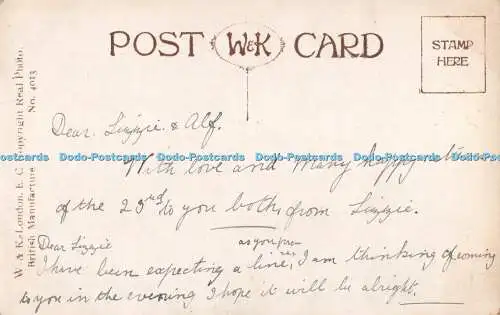 POST W&K CARD
STAMP
HERE
W & K. London, E. C. Copyright Real Photo.
British Manufacture No. 4013
Dear Lizzie & Alf.
With love and Many happy
Dodo-Postcards Dodo-Postcards Dodo-Postcards Dodo-Postcards Dodo-Postcards
of the 23rd to you both from Lizzie.
Dear Lizzie
as you pro
I have been expecting a line, I am thinking of coming
to you in the evening I hope it will be alright.